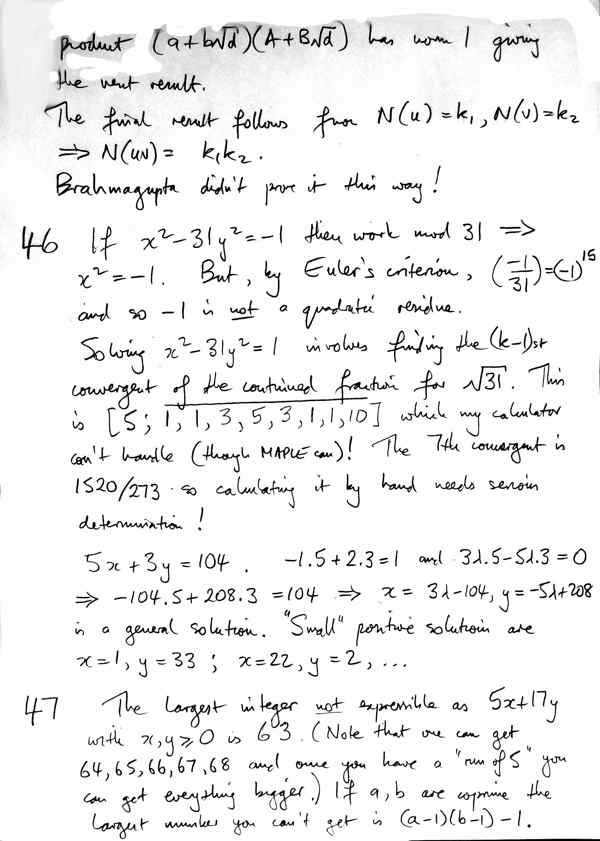 product (a+b√d)(A+B√d) has norm 1 giving
the next result.
The final result follows from N(u) = k₁, N(v) = k₂
⇒ N(uv) = k₁k₂.
Brahmagupta didn't prove it this way!
46 If x²-31y²=-1 then work mod 31 ⇒
x²=-1. But, by Euler's criterion, (-1/31)=(-1)¹⁵
and so -1 is not a quadratic residue.
Solving x²-31y²=1 involves finding the (k-1)st
convergent of the continued fraction for √31. This
is [5; 1, 1, 3, 5, 3, 1, 1, 10] which my calculator
can't handle (though MAPLE can)! The 7th convergent is
1520/273 so calculating it by hand needs serious
determination!
5x+3y=104. -1.5+2.3=1 and 3λ.5-5λ.3=0
⇒ -104.5+208.3=104 ⇒ x = 3λ-104, y=-5λ+208
is a general solution. "Small" positive solutions are
x=1, y=33 ; x=22, y=2, ...
47 The largest integer not expressible as 5x+17y
with x,y≥0 is 63. (Note that one can get
64,65,66,67,68 and once you have a "run of 5" you
can get everything bigger.) If a,b are coprime the
largest number you can't get is (a-1)(b-1)-1.